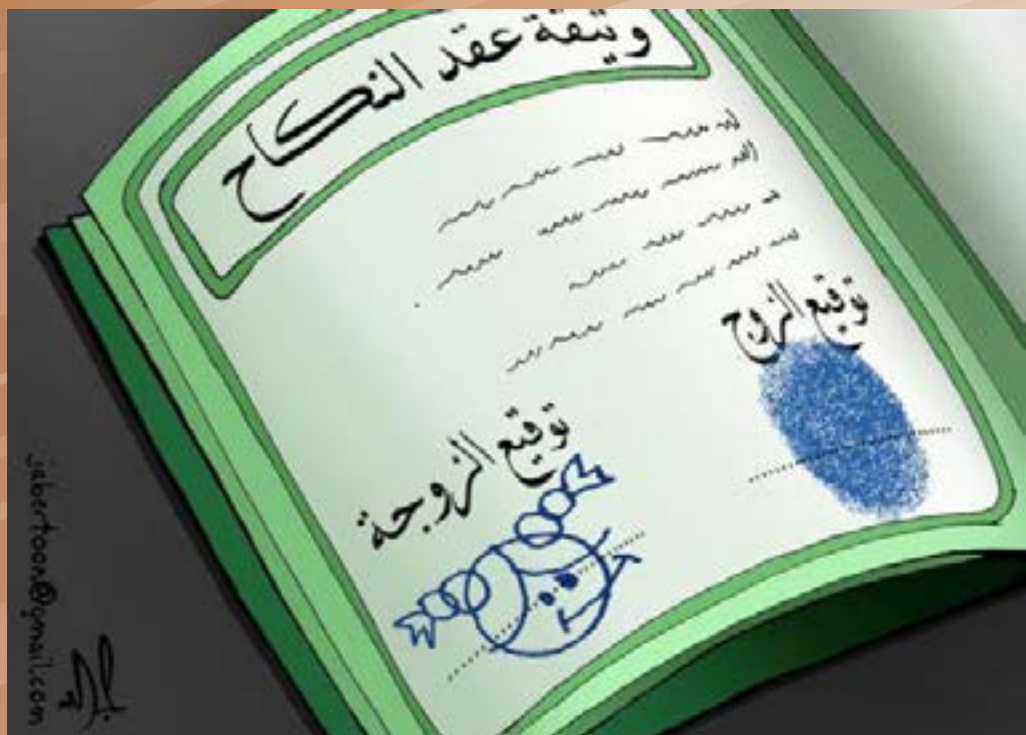 وثيقة عقد النكاح
توقيع الزوج
توقيع الزوجة
jabertoon@gmail.com